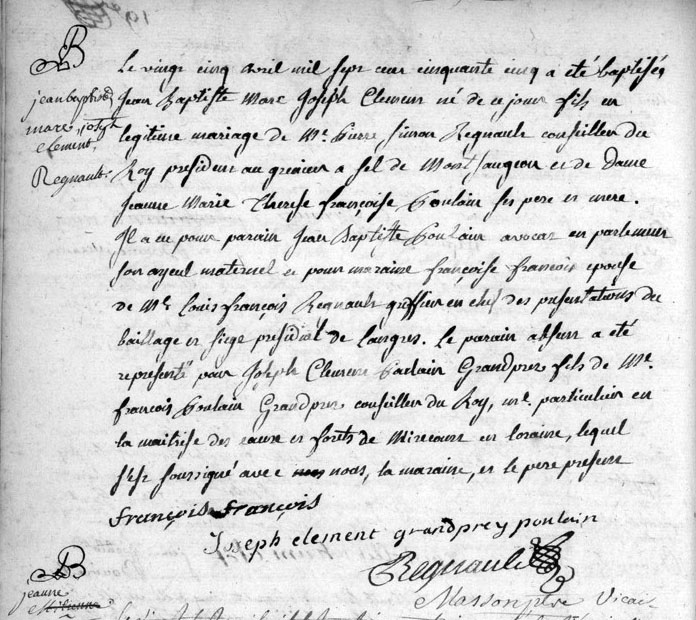 B
jean baptiste
marc, joseph
clement
Regnault.
Le vingt cinq avril mil sept cent cinquante cinq a été baptisés
Jean Baptiste Marc Joseph Clement né de ce jour fils en
legitime mariage de Mr. Pierre simon Regnault conseiller du
Roy president au grenier a sel de Montsaugeon et de Dame
Jeanne Marie Therese françoise Poulain ses pere et mere.
Il a eu pour parain Jean Baptiste Poulain avocat en parlement
son ayeul maternel et pour maraine françoise françois epouse
de Mr. Louis françois Regnault greffier en chef des presentations du
bailliage et siege presidial de Langres. Le parain absent a été
representé par Joseph Clement Poulain Grandprez fils de Mr.
françois Poulain Grandprez conseiller du Roy, me. particulier en
la maitrise des eaux et forets de Mirecourt en loraine, lequel
s'est soussigné avec nous, la maraine, et le pere present
françois françois
Joseph clement grandprey poulain
Regnault
Masson ptre Vicai
B
jeanne